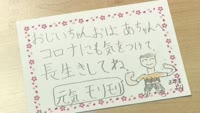 おじいちゃん、おばあちゃん
コロナにも気をつけて、
長生きしてね
元気モリモリ